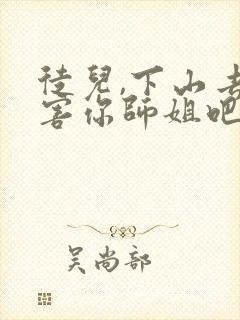 徒兒,下山去
害你師姐吧
吴尚部